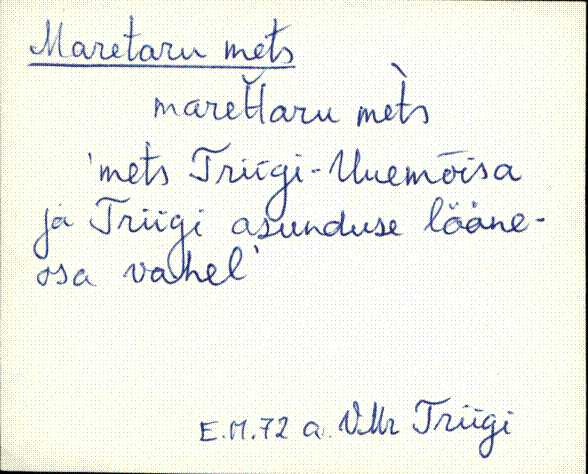 Maretaru mets
maret̆t̆aru mèts
'mets Triigi-Uuemõisa
ja Triigi asunduse lääne-
osa vahel'
E.M.72 a. VMr Triigi